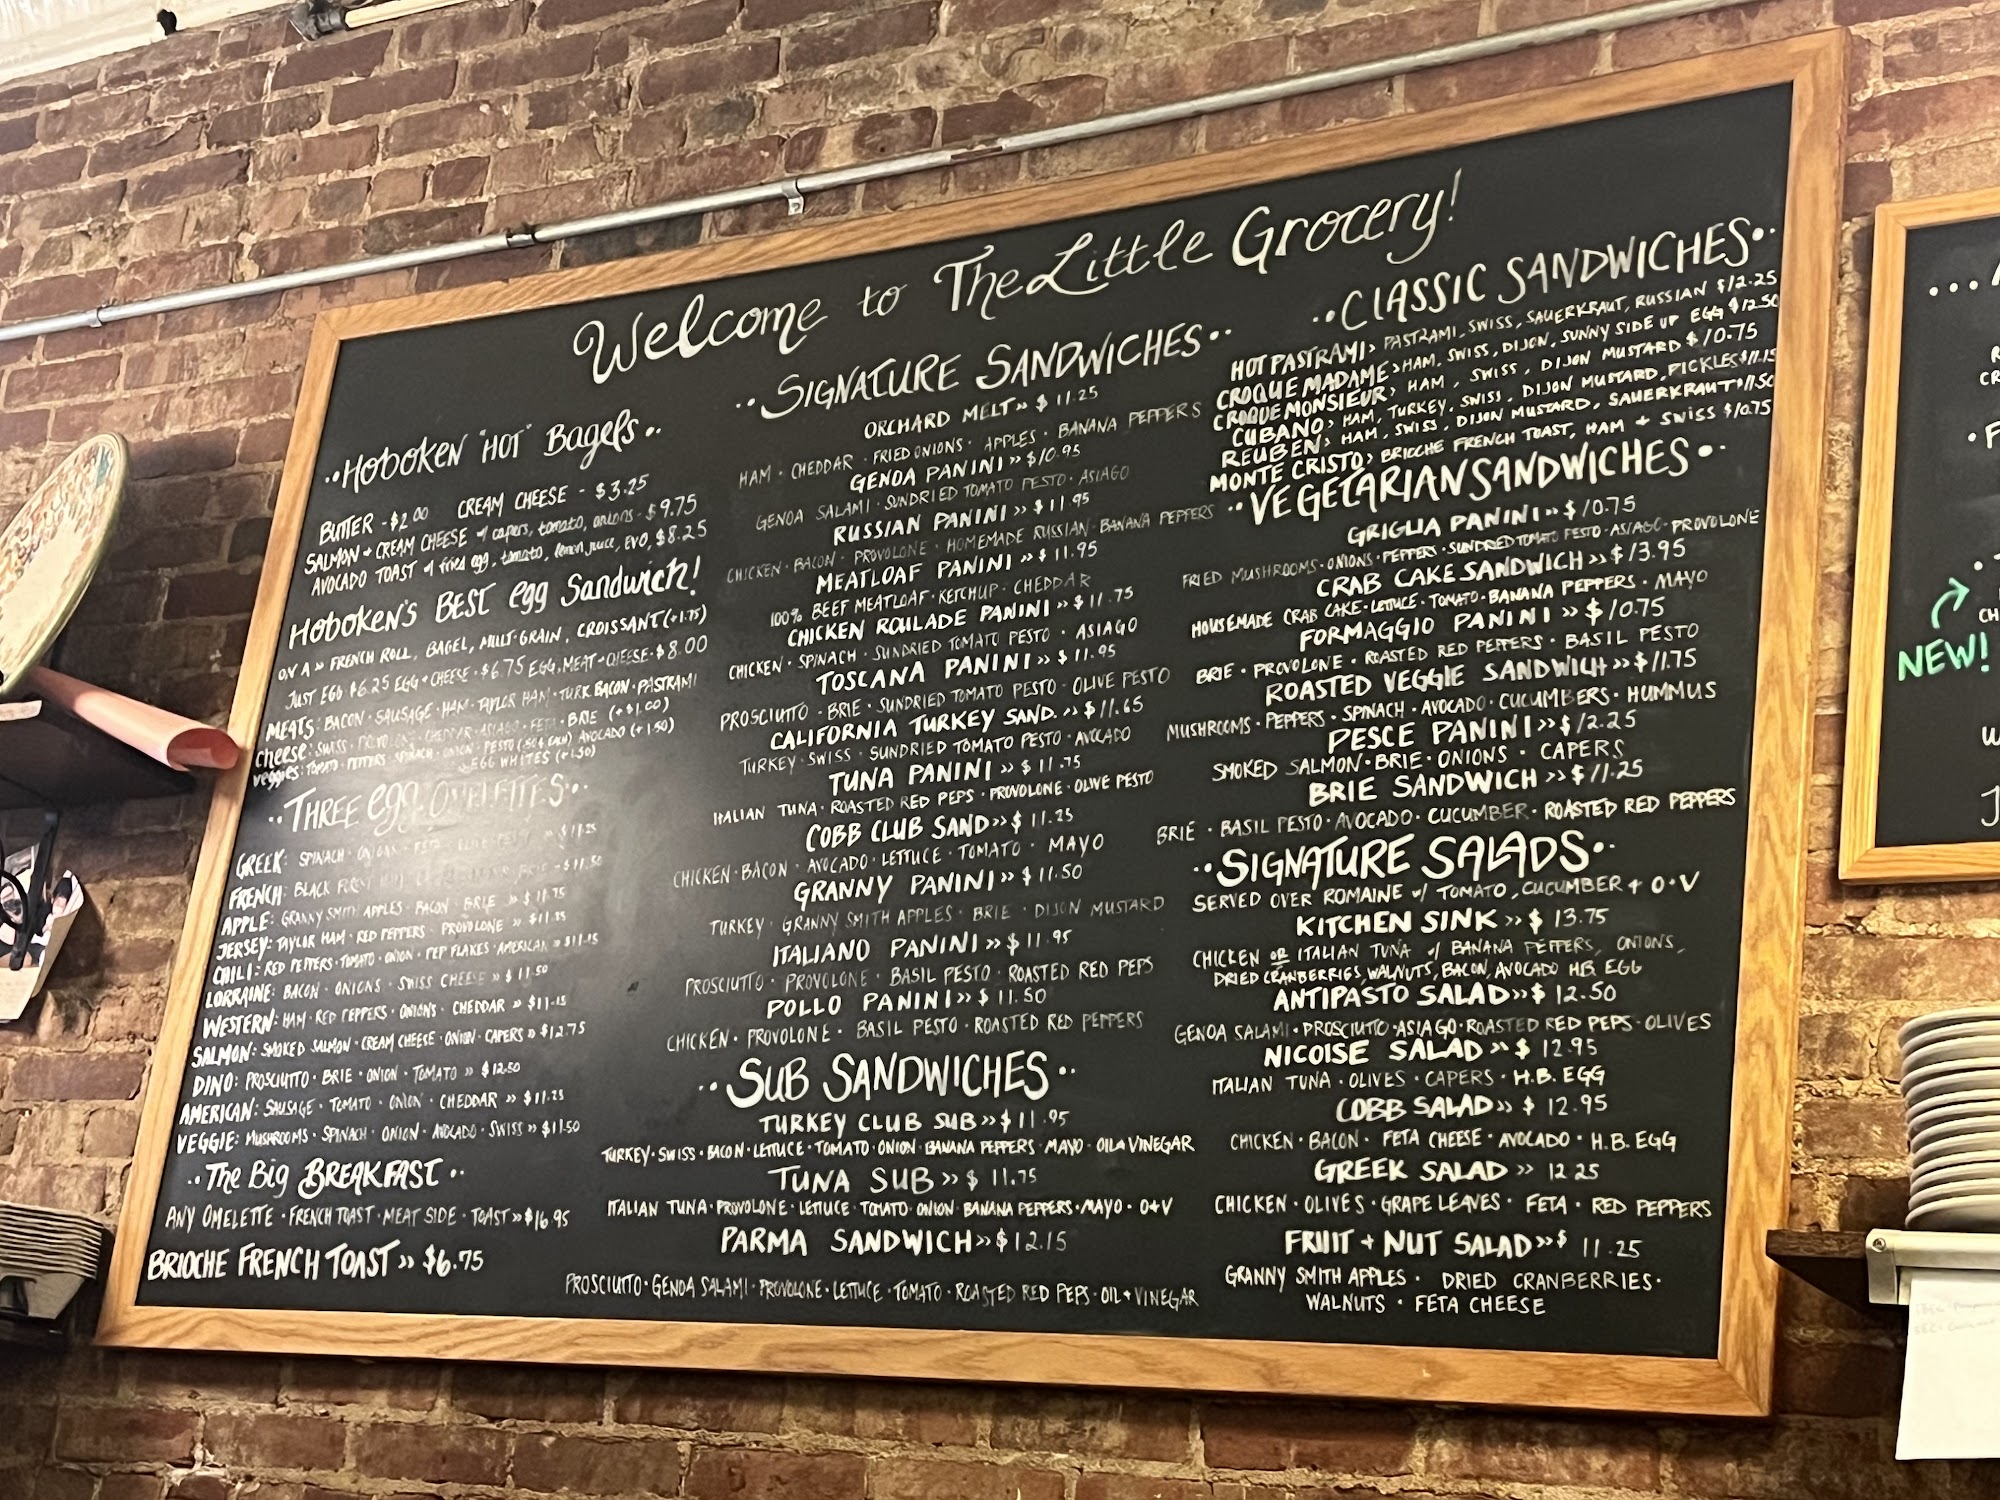 Welcome to The Little Grocery!
..Hoboken "HOT" Bagels..
BUTTER - $2.00 CREAM CHEESE - $3.25
SALMON + CREAM CHEESE w/ capers, tomato, onions - $9.75
AVOCADO TOAST w/ fried egg, tomato, lemon juice, EVO, $8.25
HOBOKEN'S BEST egg Sandwich!
ON A » FRENCH ROLL, BAGEL, MULTI-GRAIN, CROISSANT (+1.75)
JUST EGG $6.25 EGG + CHEESE · $6.75 EGG, MEAT + CHEESE · $8.00
MEATS: BACON · SAUSAGE · HAM · TAYLOR HAM · TURK BACON · PASTRAMI
cheese: SWISS · PROVOLONE · CHEDDAR · ASIAGO · FETA · BRIE (+$1.00)
veggies: TOMATO · PEPPERS · SPINACH · ONION · PESTO (.50¢ EACH) AVOCADO (+1.50)
EGG WHITES (+1.50)
..THREE egg OMELETTES..
GREEK: SPINACH · ONIONS · FETA · OLIVE PESTO » $11.25
FRENCH: BLACK FOREST HAM · BRIE » $11.50
APPLE: GRANNY SMITH APPLES · BACON · BRIE » $11.75
JERSEY: TAYLOR HAM · RED PEPPERS · PROVOLONE »
CHILI: RED PEPPERS · TOMATO · ONION · PEP FLAKES · AMERICAN »
LORRAINE: BACON · ONIONS · SWISS CHEESE » $11.50
WESTERN: HAM · RED PEPPERS · ONIONS · CHEDDAR »
SALMON: SMOKED SALMON · CREAM CHEESE · ONION · CAPERS » $12.75
DINO: PROSCIUTTO · BRIE · ONION · TOMATO » $12.50
AMERICAN: SAUSAGE · TOMATO · ONION · CHEDDAR » $11.25
VEGGIE: MUSHROOMS · SPINACH · ONION · AVOCADO · SWISS » $11.50
..The Big BREAKFAST..
ANY OMELETTE · FRENCH TOAST · MEAT SIDE · TOAST » $16.95
BRIOCHE FRENCH TOAST » $6.75
..SIGNATURE SANDWICHES..
ORCHARD MELT » $11.25
HAM · CHEDDAR · FRIED ONIONS · APPLES · BANANA PEPPERS
GENOA PANINI » $10.95
GENOA SALAMI · SUNDRIED TOMATO PESTO · ASIAGO
RUSSIAN PANINI » $11.95
CHICKEN · BACON · PROVOLONE · HOMEMADE RUSSIAN · BANANA PEPPERS
MEATLOAF PANINI » $11.95
100% BEEF MEATLOAF · KETCHUP · CHEDDAR
CHICKEN ROULADE PANINI » $11.75
CHICKEN · SPINACH · SUNDRIED TOMATO PESTO · ASIAGO
TOSCANA PANINI » $11.95
PROSCIUTTO · BRIE · SUNDRIED TOMATO PESTO · OLIVE PESTO
CALIFORNIA TURKEY SAND. » $11.65
TURKEY · SWISS · SUNDRIED TOMATO PESTO · AVOCADO
TUNA PANINI » $11.75
ITALIAN TUNA · ROASTED RED PEPS · PROVOLONE · OLIVE PESTO
COBB CLUB SAND » $11.25
CHICKEN · BACON · AVOCADO · LETTUCE · TOMATO · MAYO
GRANNY PANINI » $11.50
TURKEY · GRANNY SMITH APPLES · BRIE · DIJON MUSTARD
ITALIANO PANINI » $11.95
PROSCIUTTO · PROVOLONE · BASIL PESTO · ROASTED RED PEPS
POLLO PANINI » $11.50
CHICKEN · PROVOLONE · BASIL PESTO · ROASTED RED PEPPERS
..SUB SANDWICHES..
TURKEY CLUB SUB » $11.95
TURKEY · SWISS · BACON · LETTUCE · TOMATO · ONION · BANANA PEPPERS · MAYO · OIL + VINEGAR
TUNA SUB » $11.75
ITALIAN TUNA · PROVOLONE · LETTUCE · TOMATO · ONION · BANANA PEPPERS · MAYO · O+V
PARMA SANDWICH » $12.15
PROSCIUTTO · GENOA SALAMI · PROVOLONE · LETTUCE · TOMATO · ROASTED RED PEPS · OIL + VINEGAR
..CLASSIC SANDWICHES..
HOT PASTRAMI > PASTRAMI, SWISS, SAUERKRAUT, RUSSIAN $12.25
CROQUE MADAME > HAM, SWISS, DIJON, SUNNY SIDE UP EGG $12.50
CROQUE MONSIEUR > HAM, SWISS, DIJON MUSTARD $10.75
CUBANO > HAM, TURKEY, SWISS, DIJON MUSTARD, PICKLES $11.15
REUBEN > HAM, SWISS, DIJON MUSTARD, SAUERKRAUT $11.50
MONTE CRISTO > BRIOCHE FRENCH TOAST, HAM + SWISS $10.75
..VEGETARIAN SANDWICHES..
GRIGLIA PANINI » $10.75
FRIED MUSHROOMS · ONIONS · PEPPERS · SUNDRIED TOMATO PESTO · ASIAGO · PROVOLONE
CRAB CAKE SANDWICH » $13.95
HOUSEMADE CRAB CAKE · LETTUCE · TOMATO · BANANA PEPPERS · MAYO
FORMAGGIO PANINI » $10.75
BRIE · PROVOLONE · ROASTED RED PEPPERS · BASIL PESTO
ROASTED VEGGIE SANDWICH » $11.75
MUSHROOMS · PEPPERS · SPINACH · AVOCADO · CUCUMBERS · HUMMUS
PESCE PANINI » $12.25
SMOKED SALMON · BRIE · ONIONS · CAPERS
BRIE SANDWICH » $11.25
BRIE · BASIL PESTO · AVOCADO · CUCUMBER · ROASTED RED PEPPERS
..SIGNATURE SALADS..
SERVED OVER ROMAINE w/ TOMATO, CUCUMBER + O+V
KITCHEN SINK » $13.75
CHICKEN OR ITALIAN TUNA w/ BANANA PEPPERS, ONIONS,
DRIED CRANBERRIES, WALNUTS, BACON, AVOCADO H.B. EGG
ANTIPASTO SALAD » $12.50
GENOA SALAMI · PROSCIUTTO · ASIAGO · ROASTED RED PEPS · OLIVES
NICOISE SALAD » $12.95
ITALIAN TUNA · OLIVES · CAPERS · H.B. EGG
COBB SALAD » $12.95
CHICKEN · BACON · FETA CHEESE · AVOCADO · H.B. EGG
GREEK SALAD » 12.25
CHICKEN · OLIVES · GRAPE LEAVES · FETA · RED PEPPERS
FRUIT + NUT SALAD » $11.25
GRANNY SMITH APPLES · DRIED CRANBERRIES ·
WALNUTS · FETA CHEESE
NEW!